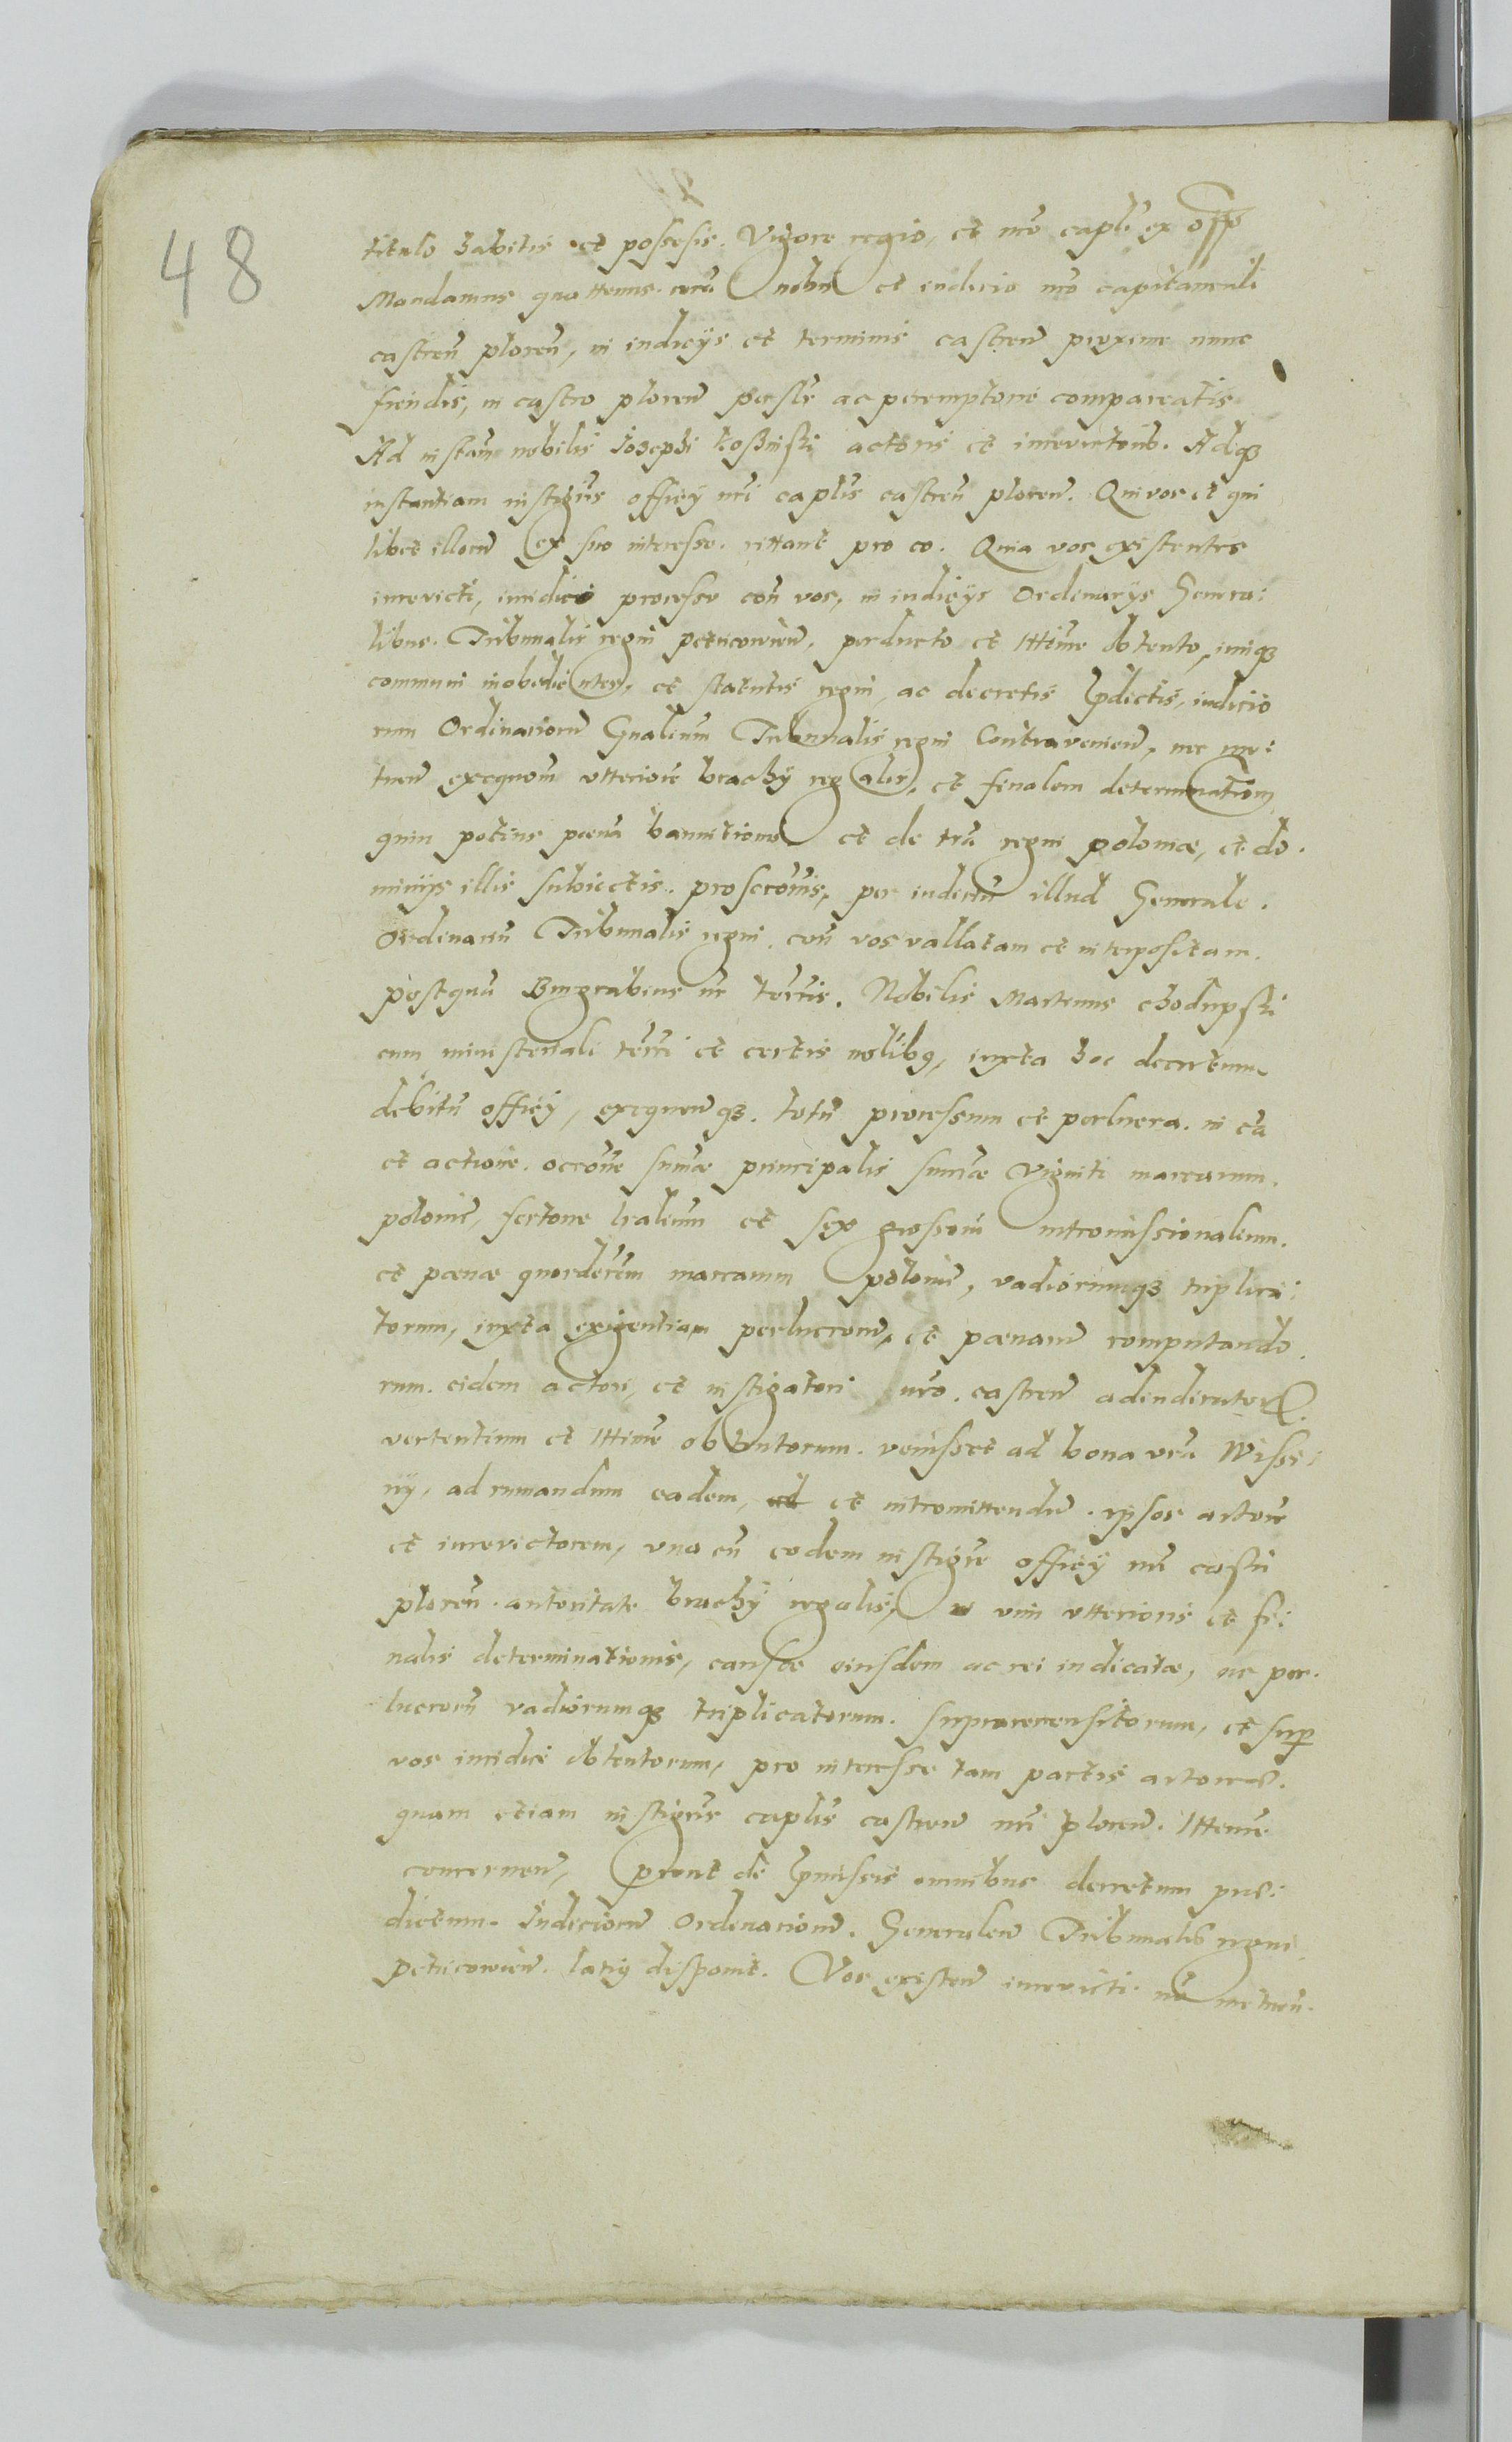 48
titulo habitis et possessis. Vigore regio, et nro capli ex offo
Mandamus quattenus coram nobis et iudicio nro capitaneali
castren plocen, in iudicijs et terminis castren proxime nunc
fiendis, in castro plocen perslr ac peremptorie compareatis
Ad instam nobilis Josephi actoris et iurevictoris. Adq3
instantiam instigris officij nri caplis castren plocen. Qui vos et qui
libet illorum ex suo interesse. cittant pro eo. Quia vos existentes
iurevicti, iuridico processu con vos, in iudicijs Ordinarijs Genera:
libus. Tribunalis regni petricovien. perducto et lttime obtento, iuriq3
communi inobedienter, et statutis regni, ac decretis pdictis, iudicio
rum Ordinariorum Gnalium Tribunalis regni Contravenien, nec me:
tuen exequom ulterioris brachij regalis, et finalem determinationem
quin potius poena bannitionis et de tra regni poloniae, et do.
minijs illis subiectis. proscronis, per iudicium illud Generale.
Ordinarium Tribunalis regni, con vos vallatam et interpositam.
postquam Burgrabius nr terris. Nobilis Martinus chodupski
cum ministeriali terri et certis nobilibus, iuxta hoc decretum
debitum officij, exequenq3. totum processum et perlucra. in ca
et actione. occone sumae principalis sumae viginti marcarum.
polonie, fertone lralium et sex grossorum intromissionalium.
et poenae quordecem marcarum polonie, vadiorumq3 triplica:
torum, iuxta exigentiam perlucrorum, et poenarum computando.
rum. eidem actori, et instigatori nro. castren adiudicator.
vertentium et lttime obtentorum. venisset ad bona vra Wisse:
ny, ad rumandum eadem, et intromittendum. ipsos actore
et iurevictorem, una cum eodem instigre officij nri castri
plocen. autoritate brachij regalis, in vim ulterioris et fi:
nalis determinationis, causae eiusdem ac rei iudicatae, ac per.
lucrorum vadiorumq3 triplicatorum. suprarecensitorum, et super
vos iuridice obtentorum, pro interesse tam partis actoreae.
quam etiam instigris caplis castren nri plocen. lttime
concernen, prout de pmissis omnibus decretum prae:
dictum. Iudiciorum Ordinariorum. Generalium Tribunalis regni
petricovien. latius disponit. Vos existen iurevicti metuen.